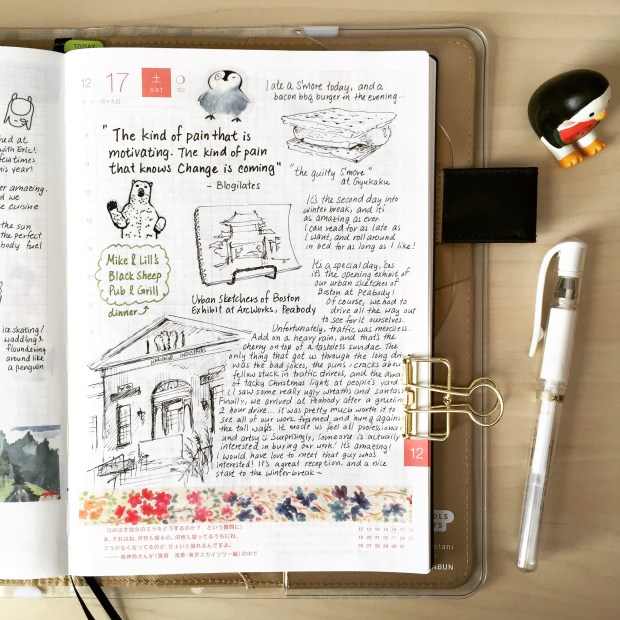 TODAY
12 17 土 SAT
hed at
with Eric!
few times
his year!
r amazing.
d we
e cuisine
the sun
the perfect
body fuel
ice skating!
waddling &
floundering
around like
a penguin.
I ate a S'more today, and a
bacon bbq burger in the evening~
"The kind of pain that is
motivating. The kind of pain
that knows Change is coming"
- Blogilates
"the guilty S'more"
at Gyukaku
It's the second day into
winter break, and it's
as amazing as ever.
I can read for as late as
I want, and roll around
in bed for as long as I like!
Mike & Lill's
Black Sheep
Pub & Grill
dinner
Urban Sketchers of Boston
Exhibit at ArcWorks, Peabody
It's a special day, 'cos
it's the opening exhibit of
our urban sketches of
Boston at Peabody!
Of course, we had to
drive all the way out
to see for ourselves.
Unfortunately, traffic was merciless.
Add on a heavy rain, and that's the
cherry on top of a tasteless sundae. The
only thing that got us through the long dri
was the bad jokes, the puns & cracks abou
fellow stuck in traffic drivers, and the awa
of tacky Christmas lights at people's yard
(I saw some really ugly wreaths and santas)
Finally, we arrived at Peabody after a grueling
2 hour drive... it was pretty much worth it to
see all of our work framed and hung agains
the tall walls. It made us feel all professiona
and artsy. Surprisingly, someone is actually
interested in buying our work! It's amazing!
Would have love to meet that guy who's
interested! It's a great reception and a nice
start to the winter break ~
12
12 13 14 15 16 17 18
19 20 21 22 23 24 25
26 27 28 29 30 31
OLS
YS
otani
NBUN